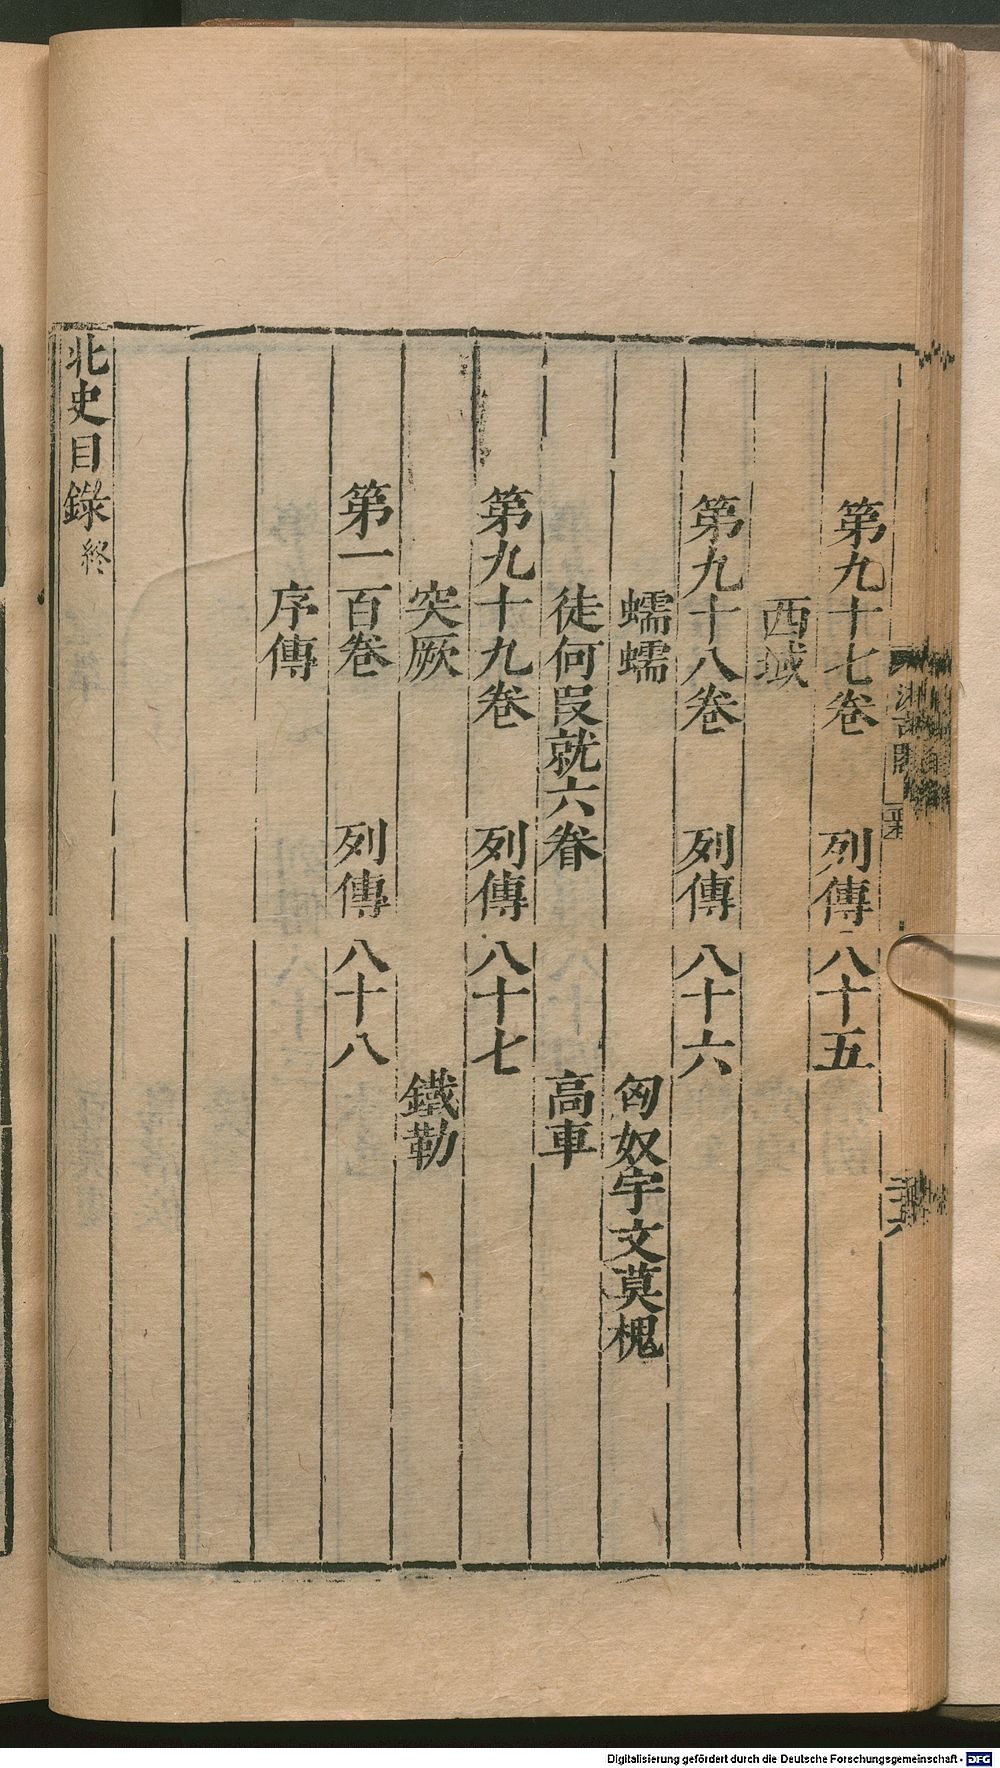 第九十七卷 列傳八十五
西域
第九十八卷 列傳八十六
蠕蠕 匈奴宇文莫槐
徒何段就六眷 高車
第九十九卷 列傳八十七
突厥 鐵勒
第一百卷 列傳八十八
序傳
北史目錄終
Digitalisierung gefördert durch die Deutsche Forschungsgemeinschaft - DFG